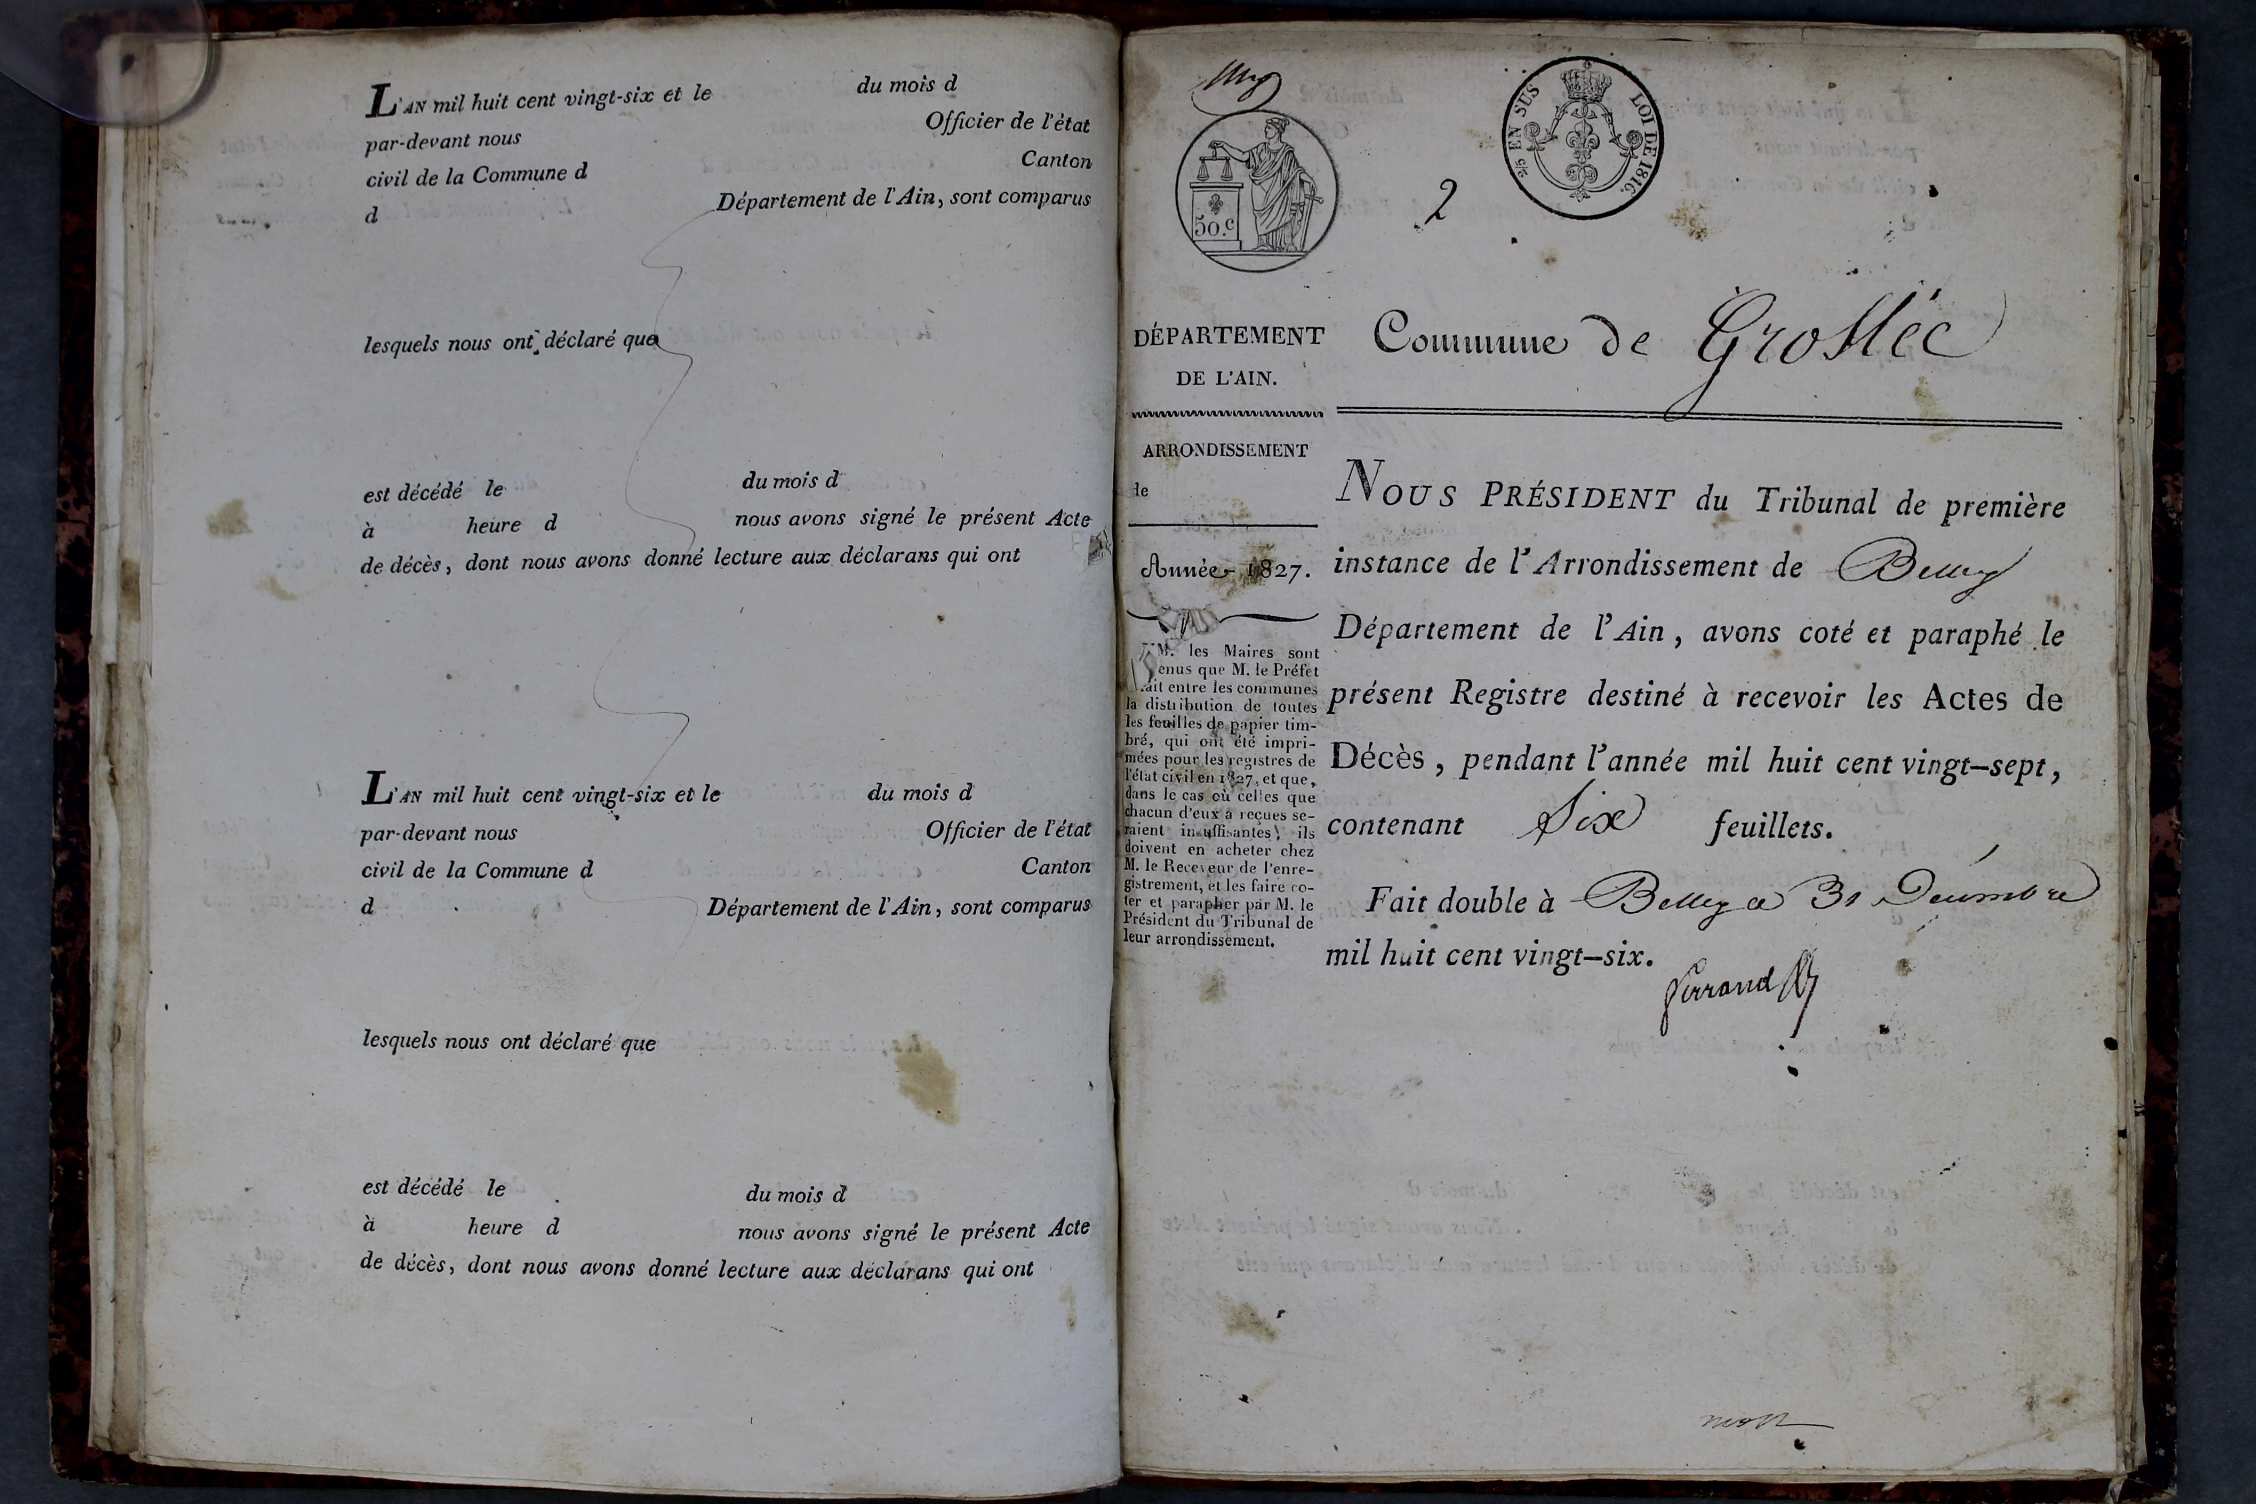 L'AN mil huit cent vingt-six et le du mois d
par-devant nous Officier de l'état
civil de la Commune d Canton
d Département de l'Ain, sont comparus
lesquels nous ont déclaré que
est décédé le du mois d
à heure d nous avons signé le présent Acte
de décès, dont nous avons donné lecture aux déclarans qui ont
L'AN mil huit cent vingt-six et le du mois d
par-devant nous Officier de l'état
civil de la Commune d Canton
d Département de l'Ain, sont comparus
lesquels nous ont déclaré que
est décédé le du mois d
à heure d nous avons signé le présent Acte
de décès, dont nous avons donné lecture aux déclarans qui ont
50.c
EN SUS LOI DE 1816.
2
DÉPARTEMENT
DE L'AIN.
Commune de Groslée
ARRONDISSEMENT
de
Année 1827.
MM. les Maires sont
enus que M. le Préfet
ait entre les communes
la distribution de toutes
les feuilles de papier tim-
bré, qui ont été impri-
mées pour les registres de
l'état civil en 1827, et que,
dans le cas où celles que
chacun d'eux a reçues se-
raient insuffisantes, ils
doivent en acheter chez
M. le Receveur de l'enre-
gistrement, et les faire co-
ter et parapher par M. le
Président du Tribunal de
leur arrondissement.
NOUS PRÉSIDENT du Tribunal de première
instance de l'Arrondissement de Belley
Département de l'Ain, avons coté et paraphé le
présent Registre destiné à recevoir les Actes de
Décès, pendant l'année mil huit cent vingt-sept,
contenant Six feuillets.
Fait double à Belley ce 31 Décembre
mil huit cent vingt-six.